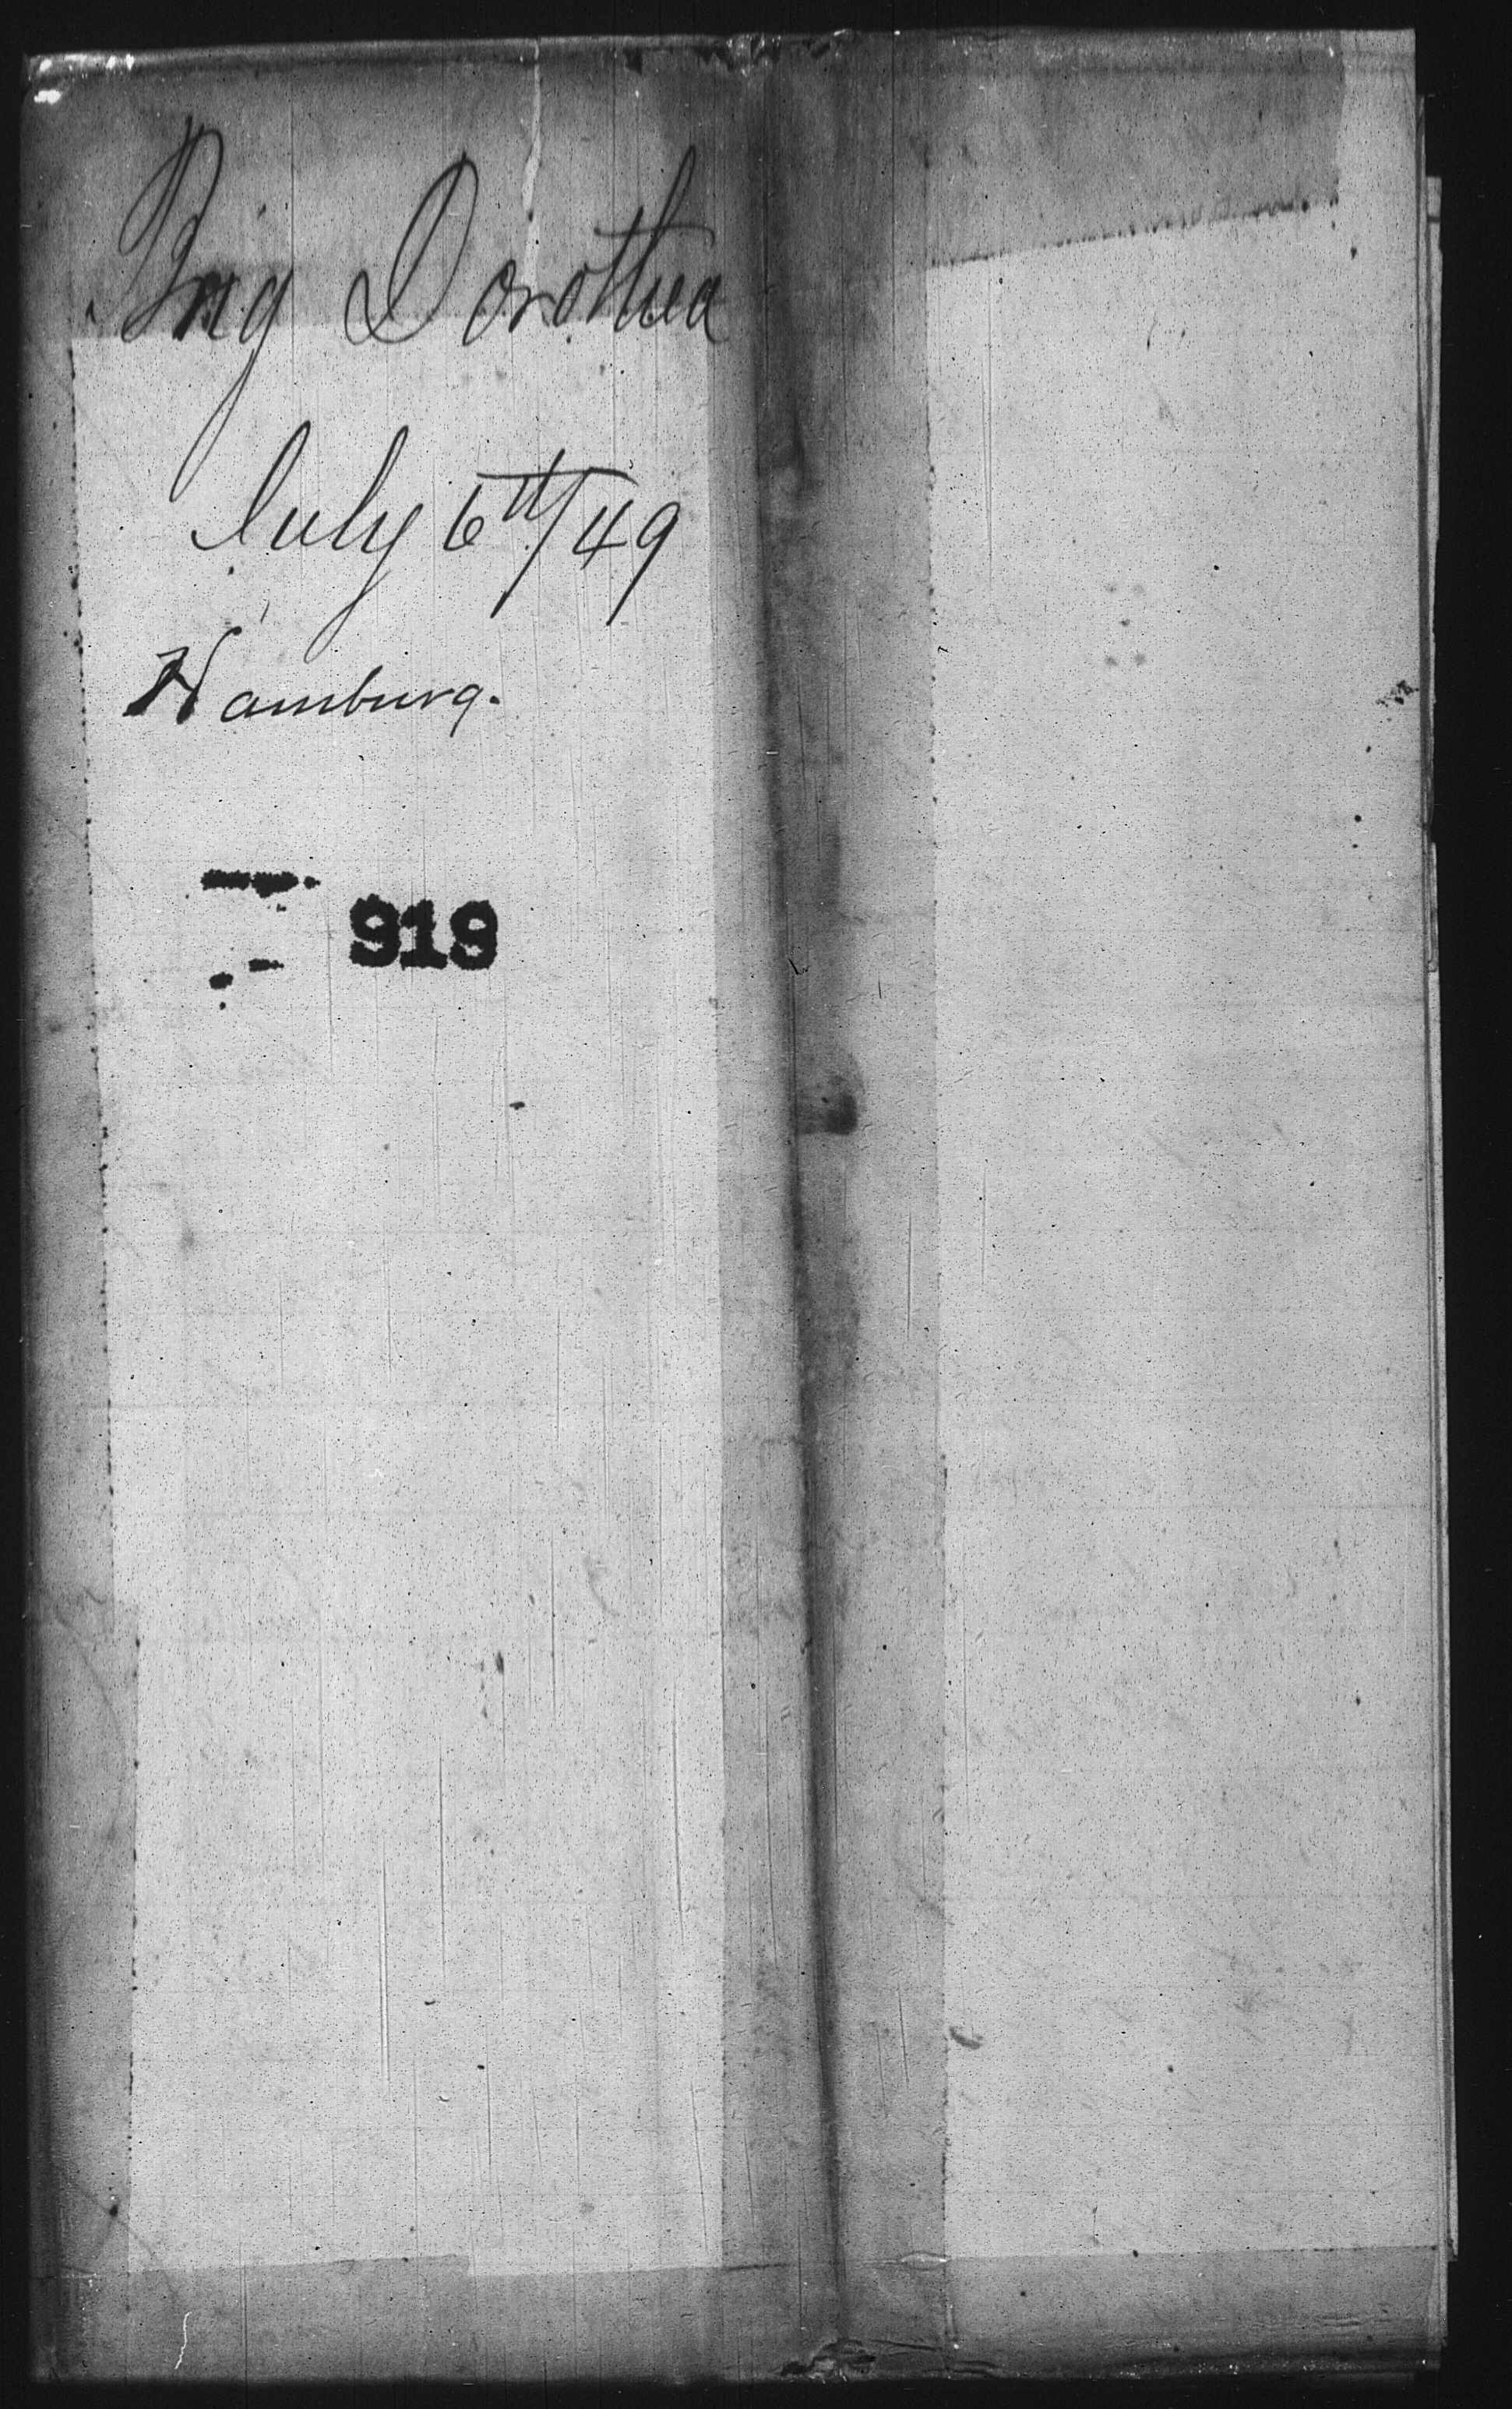 Brig Dorothea
July 6th/49
Hamburg.
919